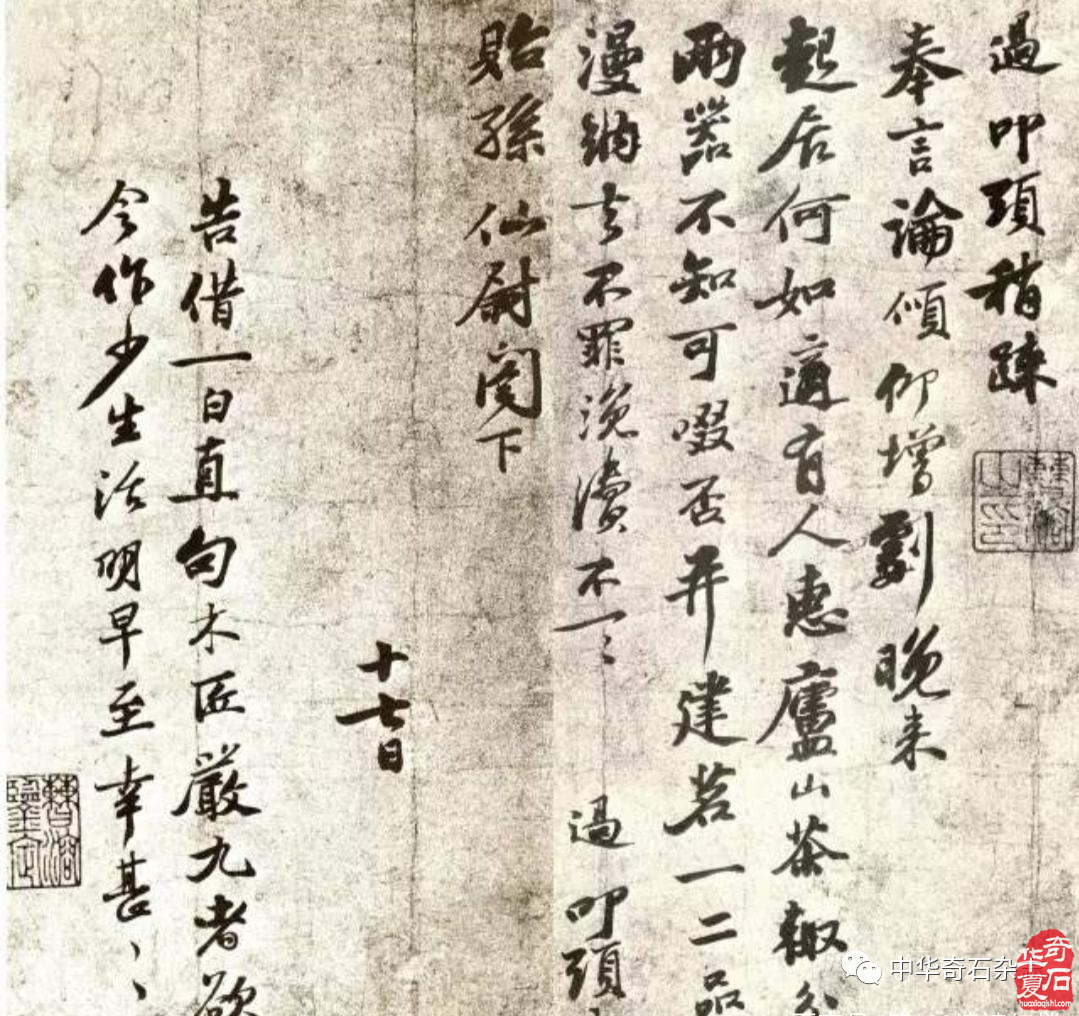 過叩頭稍疎
奉言論傾仰增劇晚来
起居何如適有人惠廬山茶輒分
兩器不知可啜否并建茗一二品
漫納去不罪浼瀆不一〻 過叩頭〻
貽孫仙尉閤下
十七日
告借一白直句木匠嚴九者欲
令作少生活明早至幸甚〻〻
中华奇石杂
华夏奇石
huaxiaqishi.com